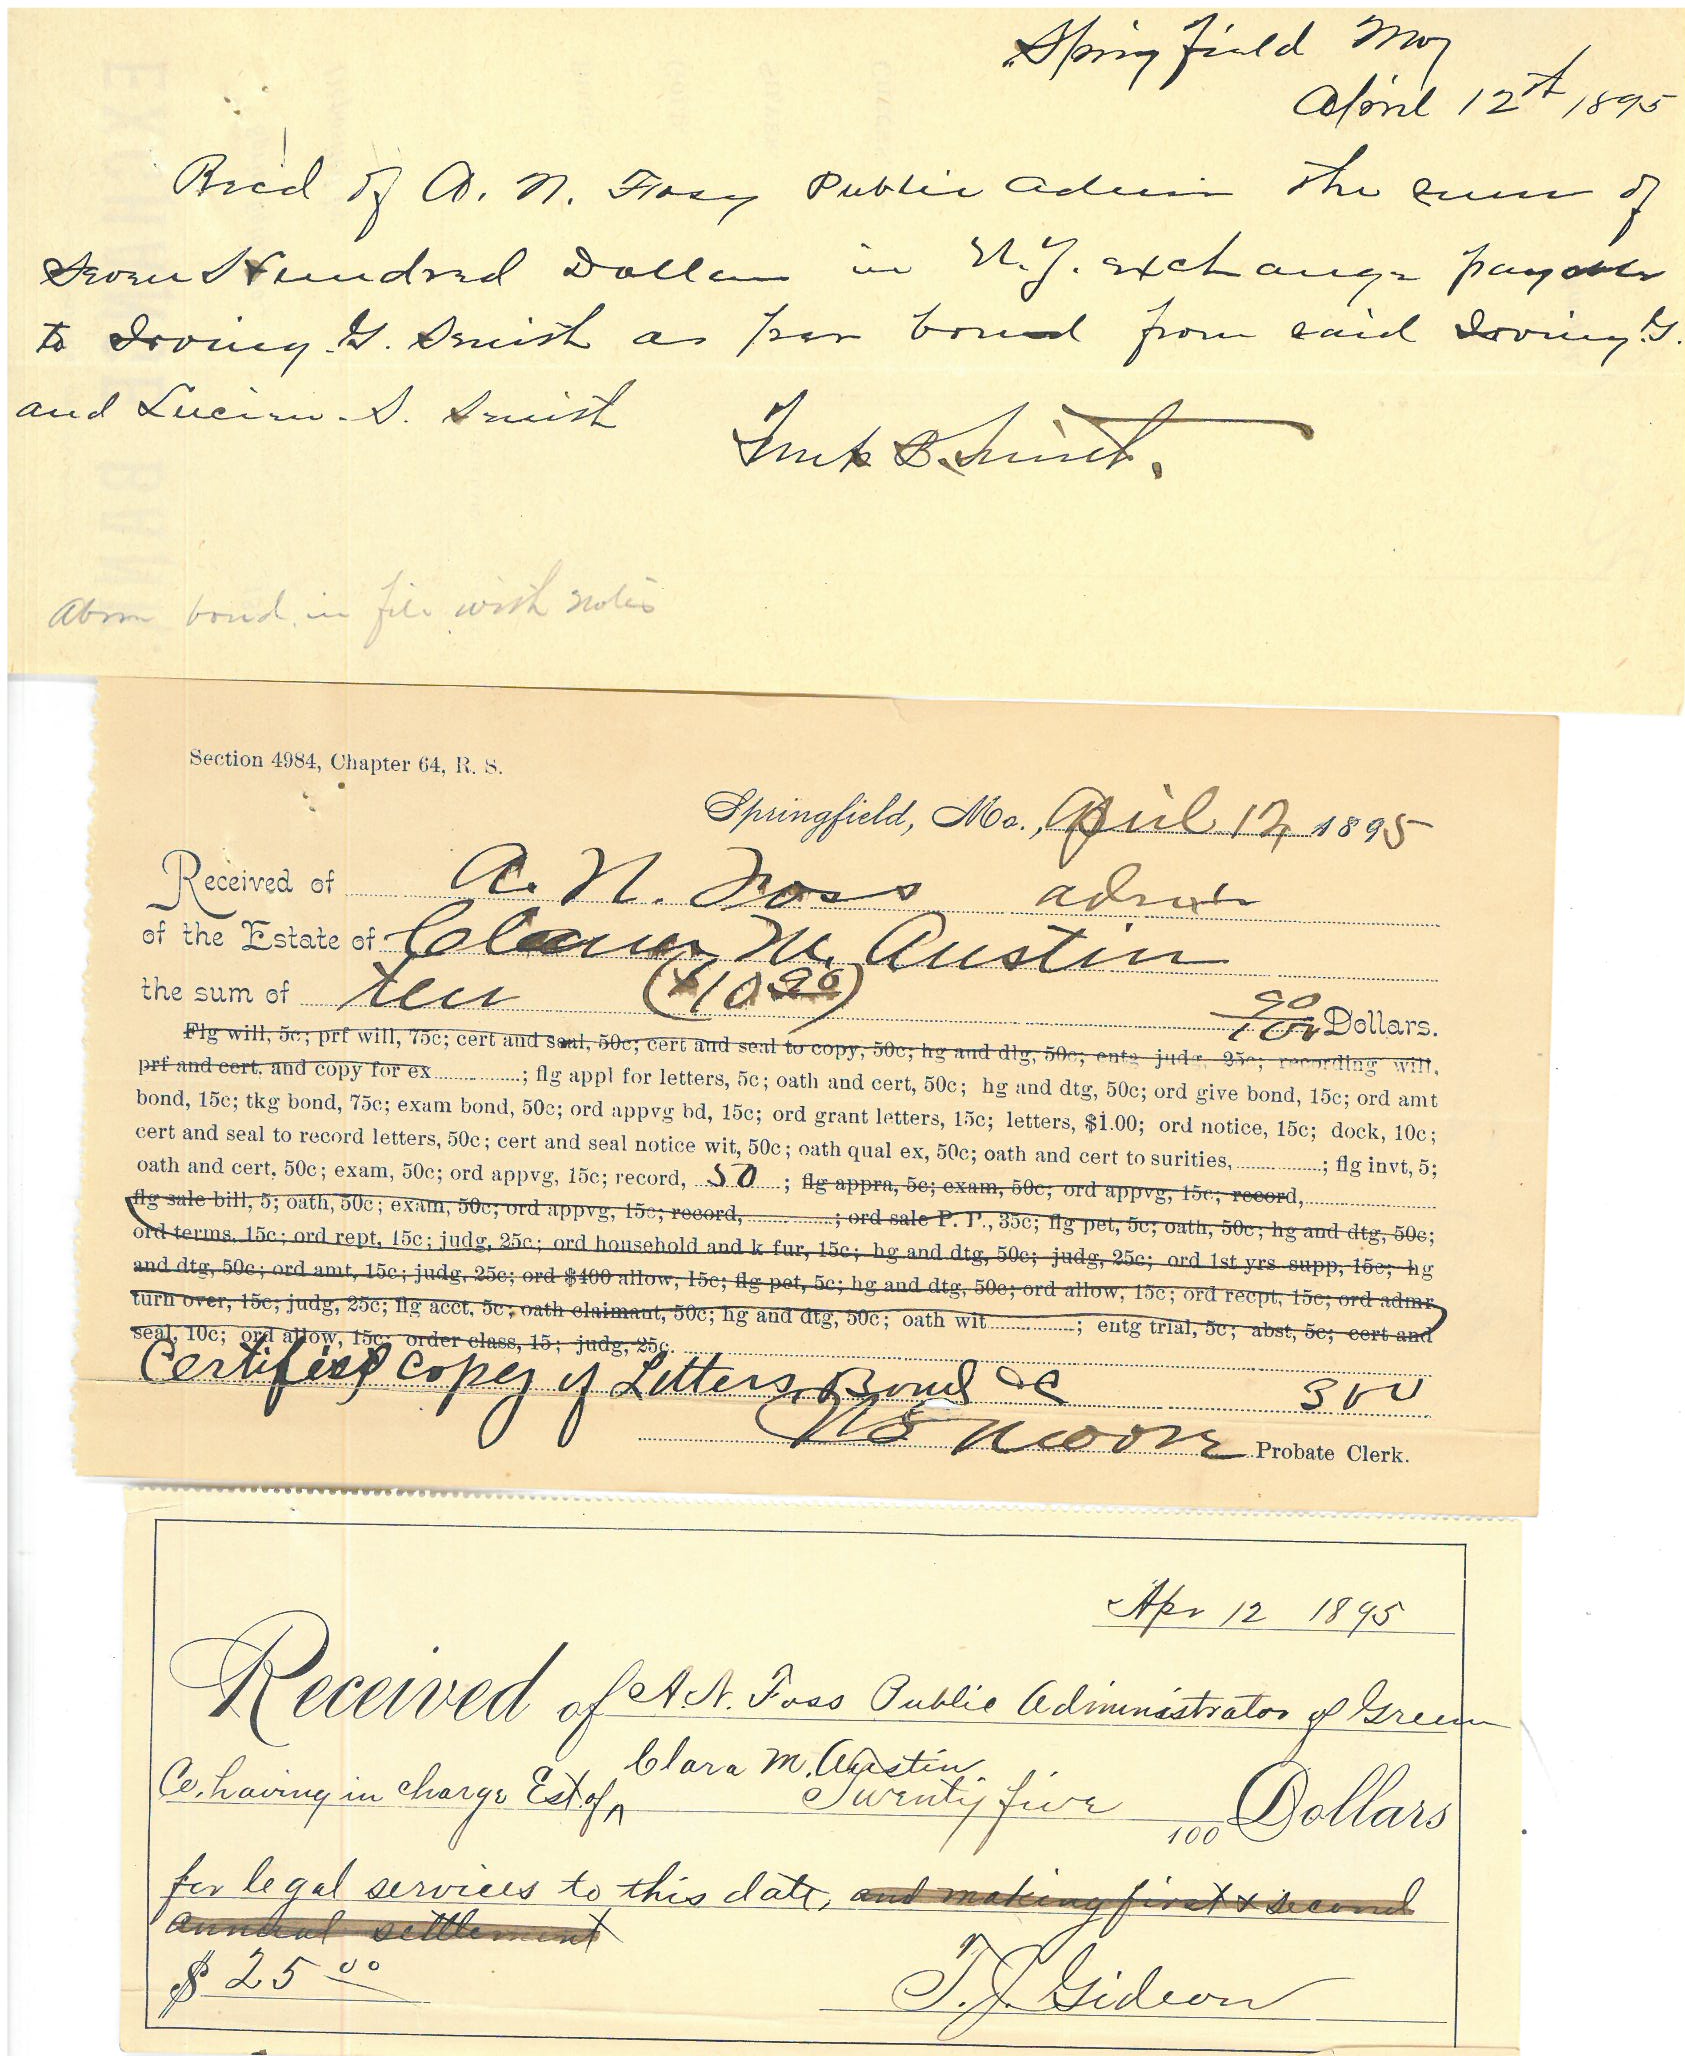 Springfield Mo
April 12th 1895
Recd of A. N. Foss Public Admin the sum of
Seven Hundred Dollars in N.Y. exchange payable
to Irving G. Smith as per bond from said Irving G.
and Lucien S. Smith
Smith.
Above bond in file with notes
Section 4984, Chapter 64, R. S.
Springfield, Mo., April 12, 1895
Received of A. N. Foss admr
of the Estate of M. Austin
the sum of ten ($10 90) 90/100 Dollars.
Flg will, 5c; prf will, 75c; cert and seal, 50c; cert and seal to copy, 50c; hg and dtg, 50c; entg judg, 25c; recording will,
prf and cert. and copy for ex ; flg appl for letters, 5c; oath and cert, 50c; hg and dtg, 50c; ord give bond, 15c; ord amt
bond, 15c; tkg bond, 75c; exam bond, 50c; ord appvg bd, 15c; ord grant letters, 15c; letters, $1.00; ord notice, 15c; dock, 10c;
cert and seal to record letters, 50c; cert and seal notice wit, 50c; oath qual ex, 50c; oath and cert to surities, ; flg invt, 5;
oath and cert, 50c; exam, 50c; ord appvg, 15c; record, 50 ; flg appra, 5c; exam, 50c; ord appvg, 15c; record,
flg sale bill, 5; oath, 50c; exam, 50c; ord appvg, 15c; record, ; ord sale P. P., 35c; flg pet, 5c; oath, 50c; hg and dtg, 50c;
ord terms, 15c; ord rept, 15c; judg, 25c; ord household and k fur, 15c; hg and dtg, 50c; judg, 25c; ord 1st yrs supp, 15c; hg
and dtg, 50c; ord amt, 15c; judg, 25c; ord $400 allow, 15c; flg pet, 5c; hg and dtg, 50c; ord allow, 15c; ord recpt, 15c; ord admr
turn over, 15c; judg, 25c; flg acct, 5c; oath claimant, 50c; hg and dtg, 50c; oath wit ; entg trial, 5c; abst, 5c; cert and
seal, 10c; ord allow, 15c; order class, 15; judg, 25c.
Certified copy of Letters, Bond &c 300
Moore Probate Clerk.
Apr 12 1895
Received of A. N. Foss Public Administrator of Green
Clara M. Austin
Co. having in charge Est. of ^ Twenty five 100 Dollars
for legal services to this date, and making first & second
annual settlement
$ 25 00 T. J. Gideon